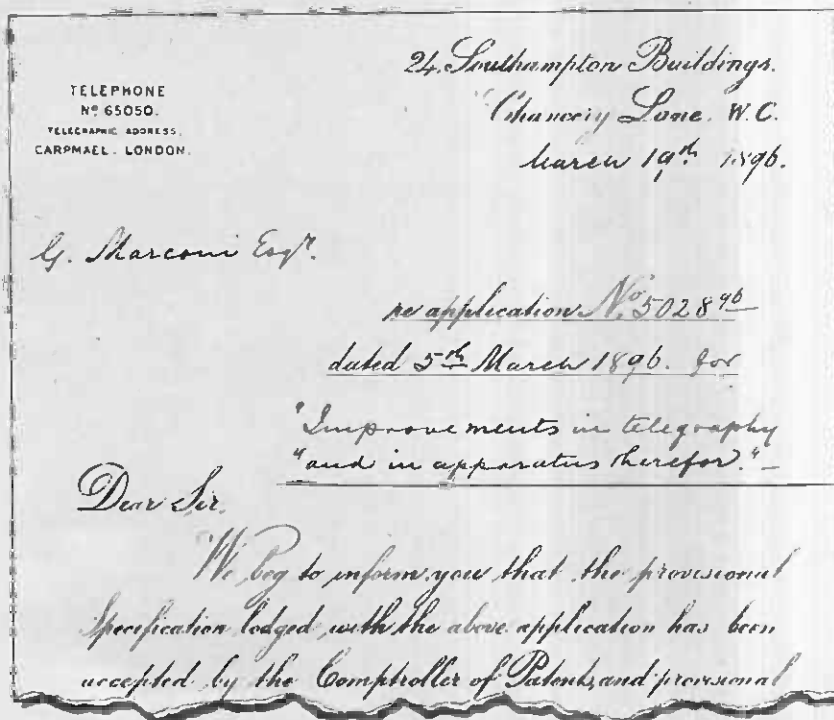 TELEPHONE
Nº 65050.
TELEGRAPHIC ADDRESS.
CARPMAEL. LONDON.
24, Southampton Buildings.
Chancery Lane. W.C.
March 19th 1896.
G. Marconi Esqr.
re application No. 5028 96
dated 5th March 1896. for
"Improvements in telegraphy
"and in apparatus therefor."
Dear Sir.
We beg to inform you that the provisional
Specification lodged with the above application has been
accepted by the Comptroller of Patents, and provisional